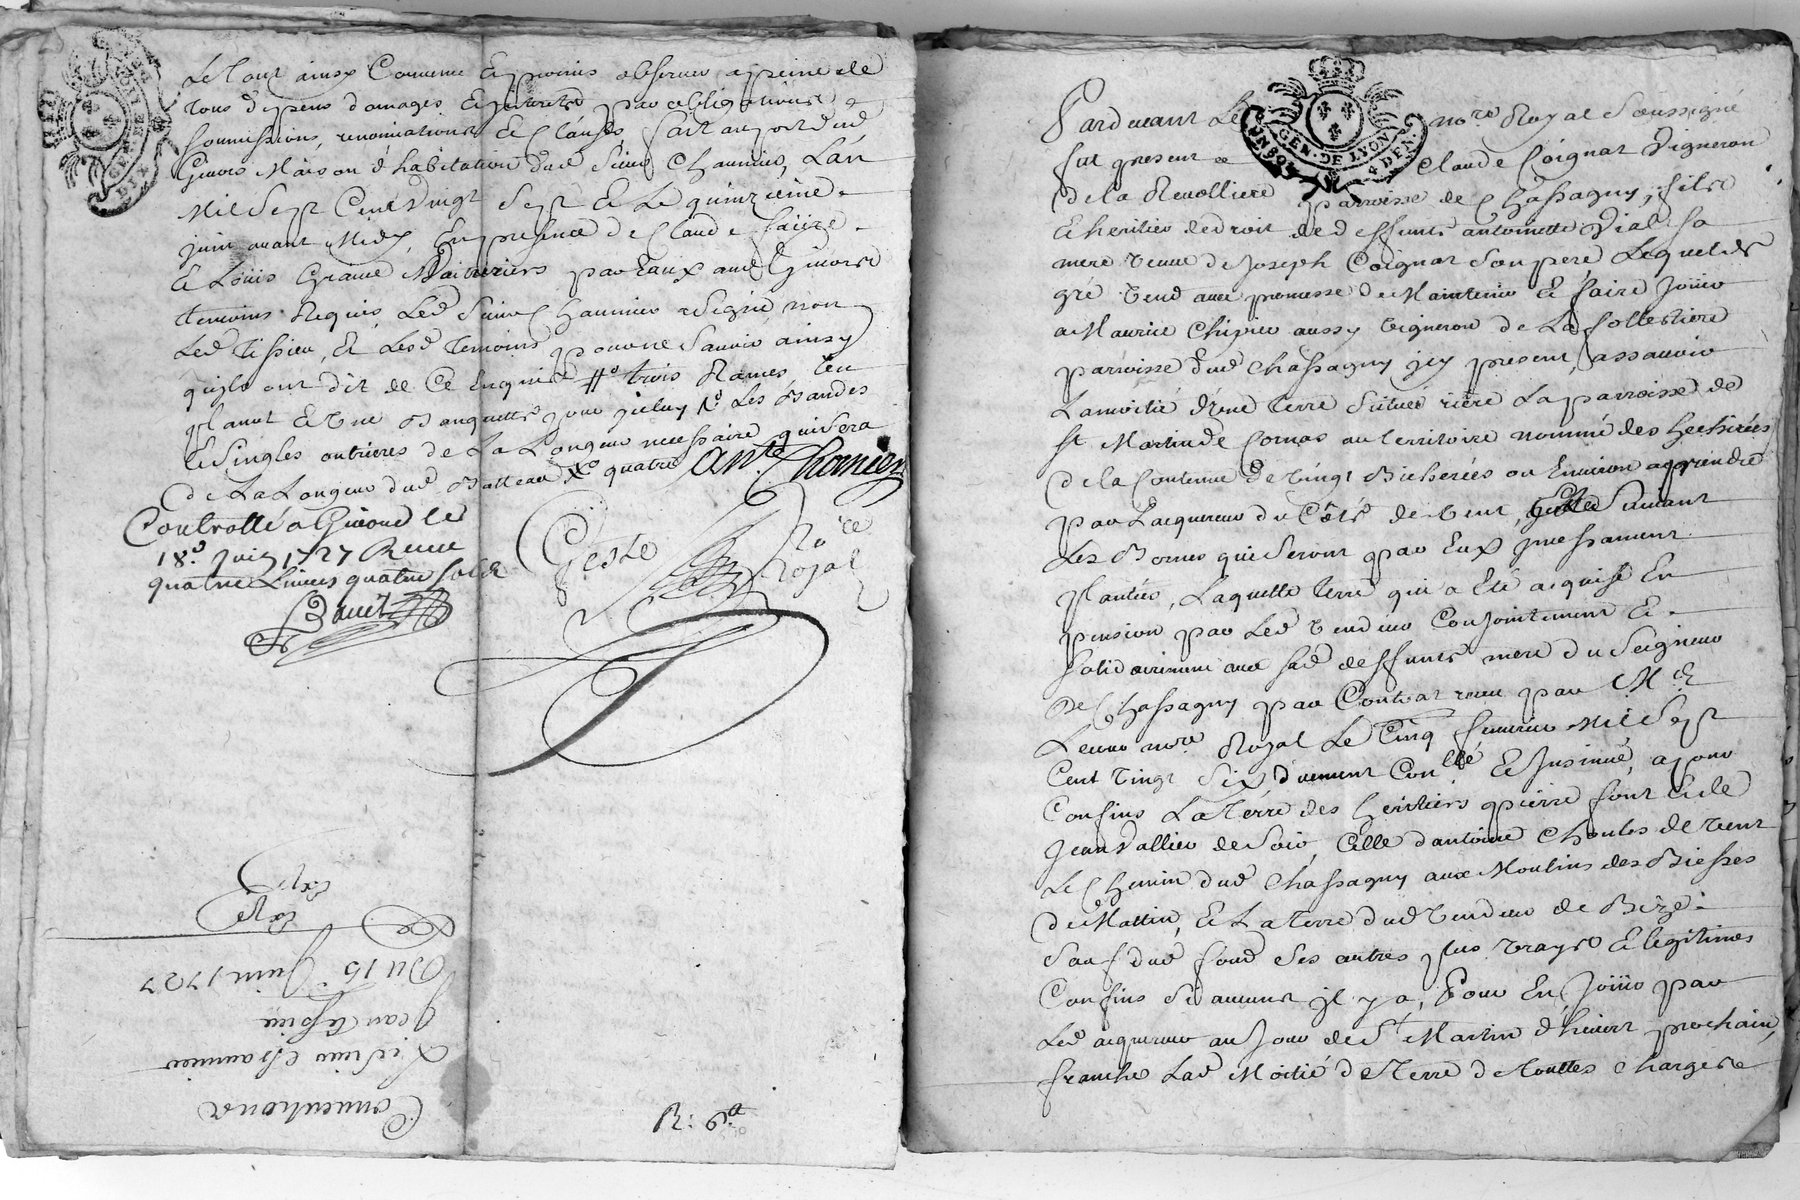 Le tout ainsy Convenu Et promis observer a peine de
tous depens domages Et interets par obligations
soumissions, renonciations Et Clauses fait au port dud
Givors Maison d'habitation dud Sieur Chaumier, L'an
Mil Sept Cent Vingt Sept Et Le quinzieme
juin avant Midy, En presence de Claude
Et Louis Grame Voituriers par Eaux aud Givors
temoins Requis Led Sieur Chaumier a Signé, non
Led Tissieu, Et Lesd temoins pour ne Sauoir ainsy
qu'ils ont dit de Ce Enquis trois Rames
Et Une Banquette pour Les Bandes
Et Singles de La Longeur necessaire qui sera
de La Longeur dud Batteau quatre Ant. Chomier
GEN. DE LYON
Controllé a Givors le
18e Juin 1727 Receu
quatre Livres quatre sols
Geste
No.re
Royal
Convenhons
Sieur Chaumier
Jean Tissieu
Du 15 Juin 1727
Exp
R: 6.
Pardevant Le no.re Royal Soussigné
fut present Claude Coignat Vigneron
de la Revolliere parroisse de Chassagny, fils
Et heritier de droit de deffunte antoinette Vial sa
mere veuve de Joseph Coignat Son pere Lequel de
gré vend avec promesse de Maintenir Et faire Jouir
a Maurice Chipier aussy Vigneron de La follettiere
parroisse dud Chassagny icy present, assavoir
La moitié d'une terre Située riere La parroisse de
St Martin de Cornas au territoire nommé des
de la Contenue de Vingt Bicherées ou Environ a prendre
par Lacquereur du Côté de vent, Suivant
Les Bornes qui Seront par Eux incessament
plantées, Laquelle terre qui a Eté acquise En
pension par Led Vendeur Conjointement Et
Solidairement avec sad deffunte mere du Seigneur
De Chassagny par Contrat receu par M.e
no.re Royal Le Cinq fevrier Mil Sept
Cent Vingt Six duement Con.llé Et Insinué, a pour
Confins La Terre des heritiers pierre font Et de
Jean Vallier de Soir, Celle d'antoine de vent
Le Chemin dud Chassagny aux Moulins des
de Mattin, Et La Terre dud Vendeur de Bize
Sauf dud fond Ses autres plus vrays Et legitimes
Confins Si aucuns il y a, Pour En Jouir par
Led acquereur au Jour de St Martin d'hivert prochain,
franche Lad Moitié de Terre de touttes Charges
GEN. DE LYON
4 DEN.